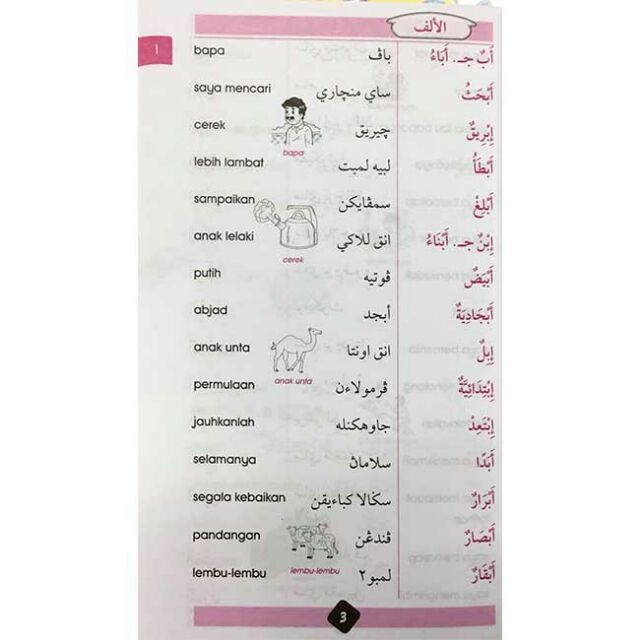 الألف
ا
bapa باڤ أَبٌ جـ. أَبَاءُ
saya mencari ساي منچاري أَبْحَثُ
cerek چيريق إِبْرِيقٌ
bapa
lebih lambat لبيه لمبت أَبْطَأُ
sampaikan سمڤايكن أَبْلِغْ
anak lelaki انق للاكي إِبْنٌ جـ. أَبْنَاءُ
cerek
putih ڤوتيه أَبْيَضٌ
abjad أبجد أَبْجَادِيَةٌ
anak unta انق اونتا إِبِلٌ
anak unta
permulaan ڤرمولاءن إِبْتِدَائِيَّةٌ
jauhkanlah جاوهكنله إِبْتَعِدْ
selamanya سلاماڽ أَبَدًا
segala kebaikan سݢالا كباءيقن أَبْرَارٌ
pandangan ڤندڠن أَبْصَارٌ
lembu-lembu
lembu-lembu لمبو٢ أَبْقَارٌ
3